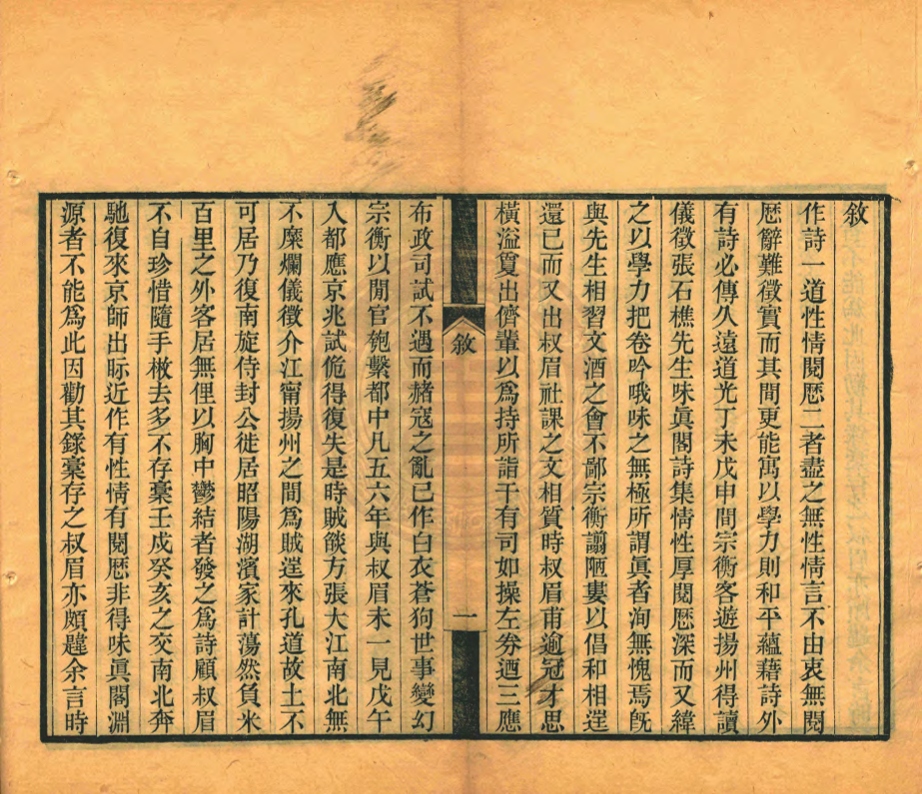 敘
作詩一道性情閱歷二者盡之無性情言不由衷無閱
歷辭難徵實而其間更能寓以學力則和平蘊藉詩外
有詩必傳久遠道光丁未戊申間宗衡客遊揚州得讀
儀徵張石樵先生味眞閣詩集情性厚閱歷深而又緯
之以學力把卷吟哦味之無極所謂眞者洵無愧焉旣
與先生相習文酒之會不鄙宗衡謭陋婁以倡和相逕
還已而又出叔眉社課之文相質時叔眉甫逾冠才思
橫溢敻出儕輩以爲持所詣于有司如操左券迺三應
敘
一
布政司試不遇而赭寇之亂已作白衣蒼狗世事變幻
宗衡以閒官匏繫都中凡五六年與叔眉未一見戊午
入都應京兆試佹得復失是時賊燄方張大江南北無
不糜爛儀徵介江甯揚州之間爲賊逕來孔道故土不
可居乃復南旋侍封公徙居昭陽湖濱家計蕩然負米
百里之外客居無俚以胸中鬱結者發之爲詩顧叔眉
不自珍惜隨手㪚去多不存稾壬戍癸亥之交南北奔
馳復來京師出眎近作有性情有閱歷非得味眞閣淵
源者不能爲此因勸其錄稾存之叔眉亦頗韙余言時